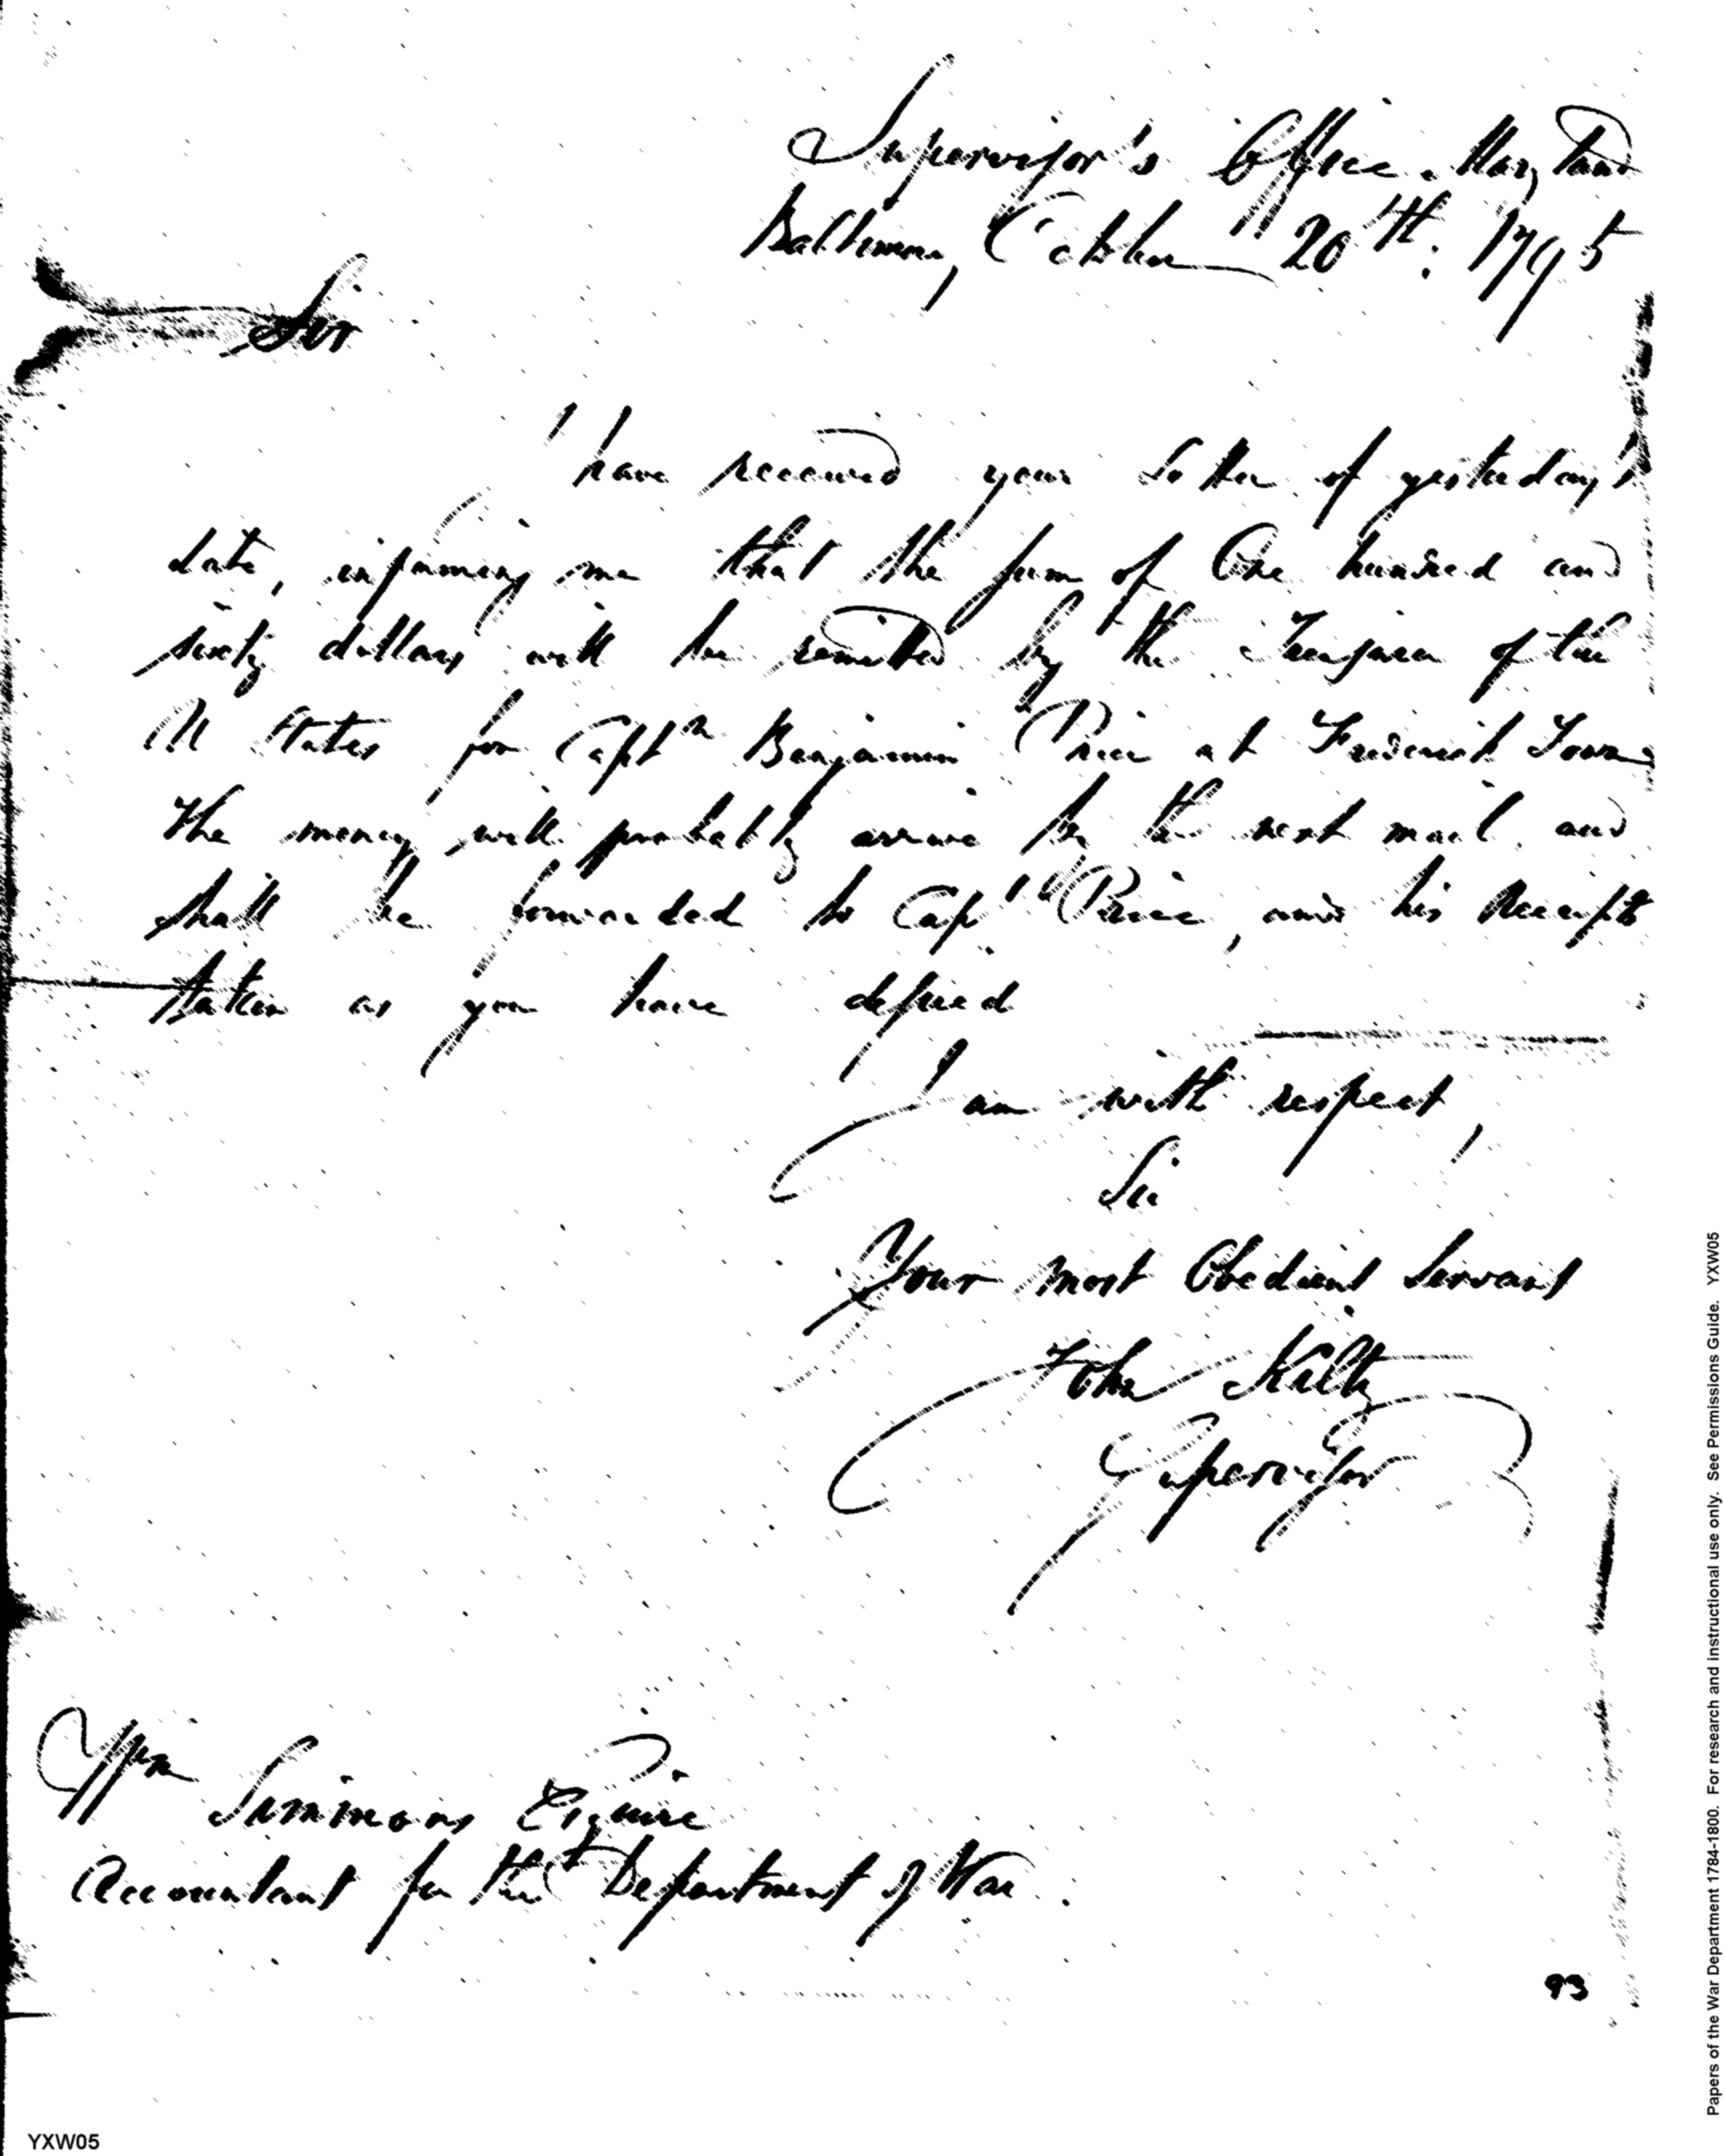 Supervisor's Office. Maryland
Baltimore, October 20th: 1795
Sir
I have received your Letter of yesterday's
date, informing me that the sum of One hundred and
sixty dollars will be remitted by the Treasurer of the
U States for Captn Benjamin Price at Frederick Town
The money will probably arrive by the next mail and
shall be forwarded to Capt Price, and his Receipts
taken as you have desired
I am with respect,
Sir
Your most Obedient Servant
John Kilty
Supervisor
Wm Simmons Esquire
Accountant for the Department of War.
93
YXW05
Papers of the War Department 1784-1800. For research and instructional use only. See Permissions Guide. YXW05